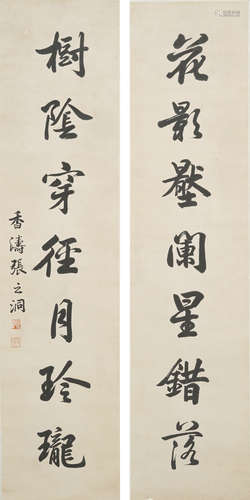 花影壓闌星錯落
樹陰穿徑月玲瓏
香濤張之洞